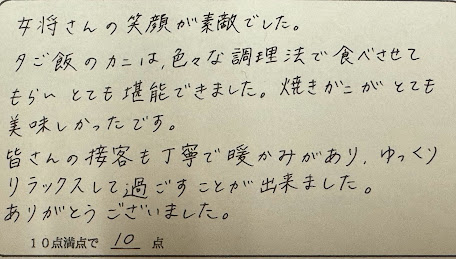 女将さんの笑顔が素敵でした。
夕ご飯のカニは、色々な調理法で食べさせて
もらい とても堪能できました。焼きガニが とても
美味しかったです。
皆さんの接客も丁寧で暖かみがあり、ゆっくり
リラックスして過ごすことが出来ました。
ありがとうございました。
10点満点で 10 点